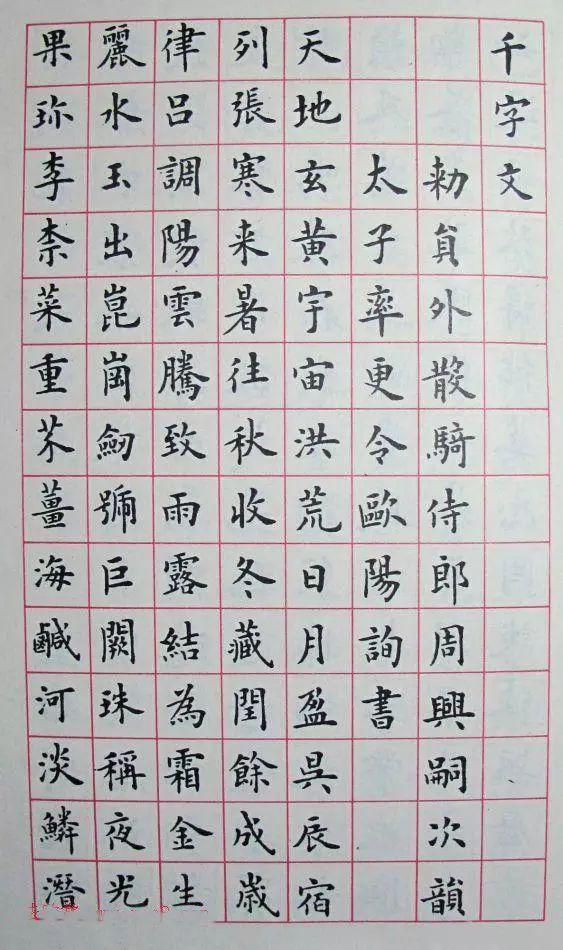 千字文
勑貟外散騎侍郎周興嗣次韻
太子率更令歐陽詢書
天地玄黃宇宙洪荒日月盈昃辰宿
列張寒来暑往秋收冬藏閏餘成歲
律吕調陽雲騰致雨露結為霜金生
麗水玉出崑崗劒號巨闕珠稱夜光
果珎李柰菜重芥薑海鹹河淡鱗潛